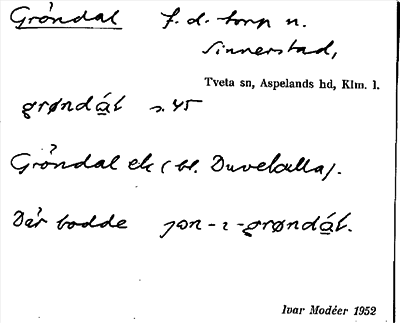 Gröndal f. d. torp n.
Sinnerstad,
Tveta sn, Aspelands hd, Klm. l.
grøndál s. 45
Gröndal ek (bl. Duvekulla).
Där bodde jon-ı-grøndál.
Ivar Modéer 1952